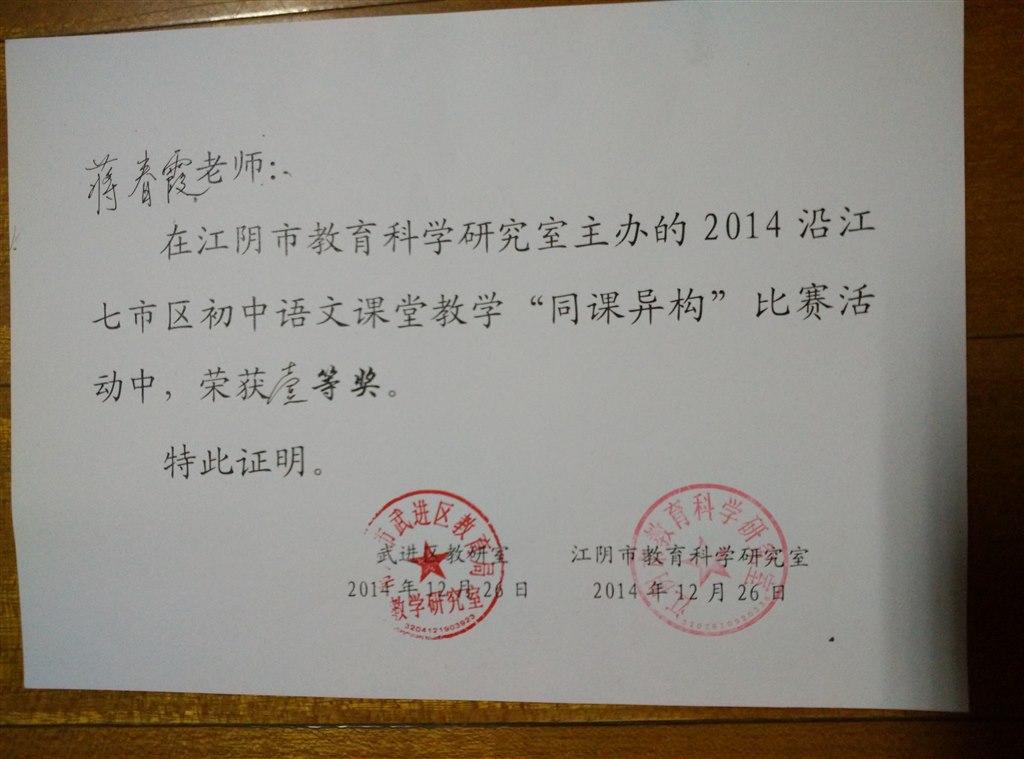 蒋春霞老师：
在江阴市教育科学研究室主办的 2014 沿江
七市区初中语文课堂教学“同课异构”比赛活
动中，荣获壹等奖。
特此证明。
武进区教研室
2014 年 12 月 26 日
江阴市教育科学研究室
2014 年 12 月 26 日
市武进区教育局
教学研究室
3204121903923
江阴市教育科学研究室